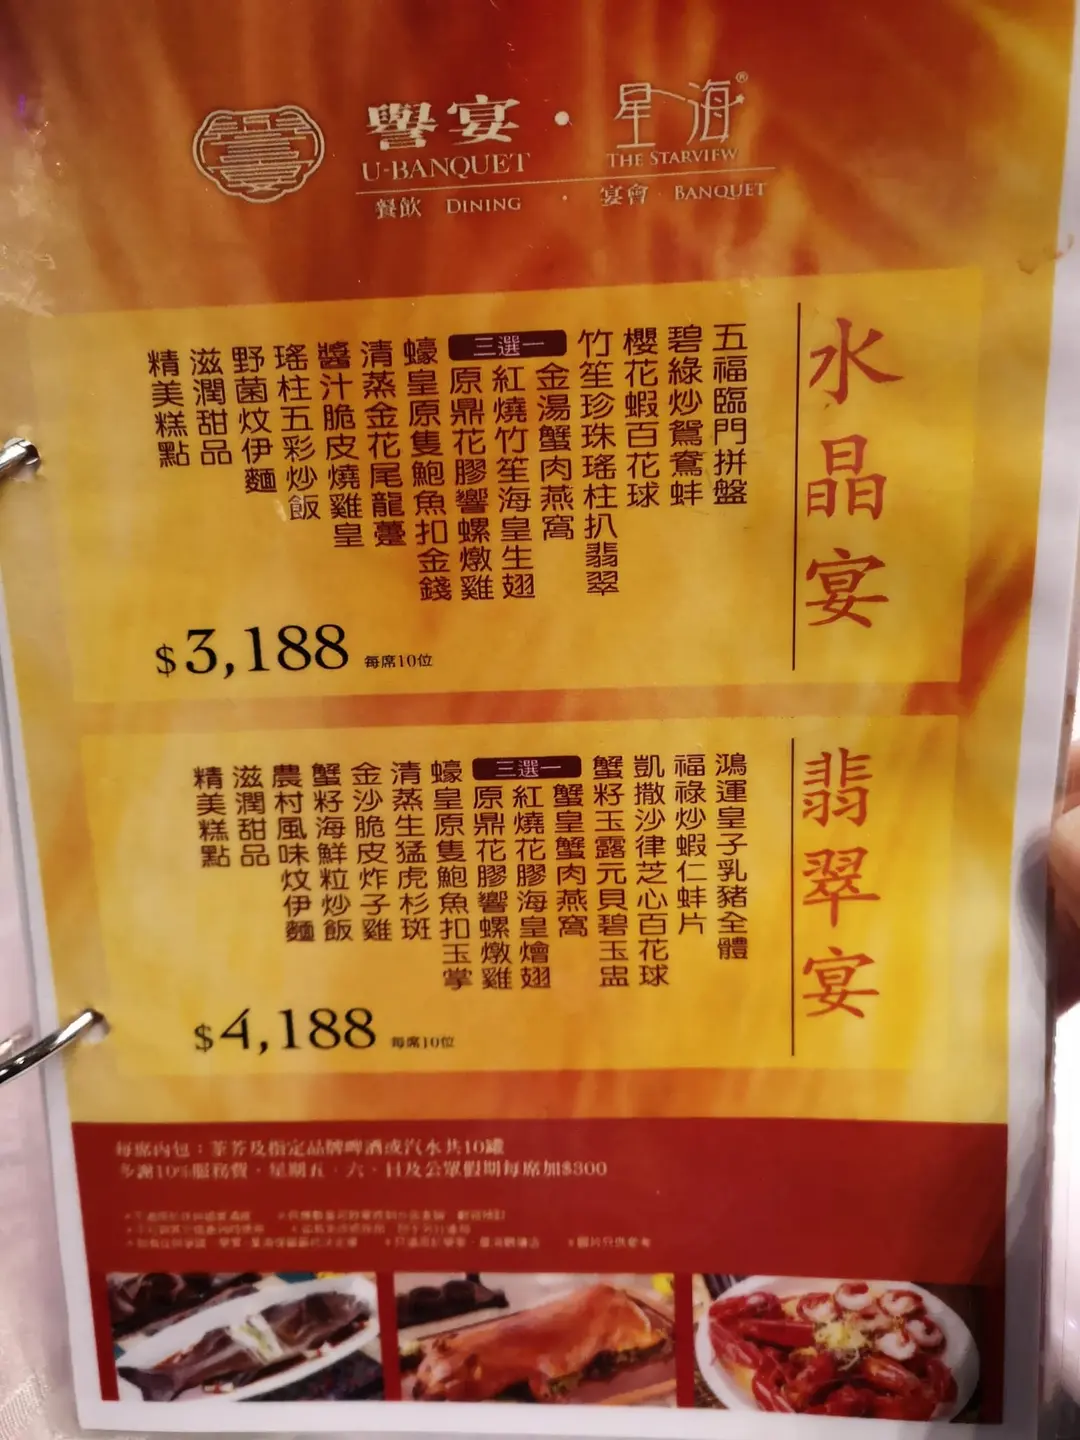 譽宴・星海®
U-BANQUET THE STARVIEW
餐飲 DINING ・ 宴會 BANQUET
水晶宴
五福臨門拼盤
碧綠炒鴛鴦蚌
櫻花蝦百花球
竹笙珍珠瑤柱扒翡翠
三選一
金湯蟹肉燕窩
紅燒竹笙海皇生翅
原鼎花膠響螺燉雞
蠔皇原隻鮑魚扣金錢
清蒸金花尾龍躉
醬汁脆皮燒雞皇
瑤柱五彩炒飯
野菌炆伊麵
滋潤甜品
精美糕點
$3,188 每席10位
翡翠宴
鴻運皇子乳豬全體
福祿炒蝦仁蚌片
凱撒沙律芝心百花球
蟹籽玉露元貝碧玉盅
三選一
蟹皇蟹肉燕窩
紅燒花膠海皇燴翅
原鼎花膠響螺燉雞
蠔皇原隻鮑魚扣玉掌
清蒸生猛虎杉斑
金沙脆皮炸子雞
蟹籽海鮮粒炒飯
農村風味炆伊麵
滋潤甜品
精美糕點
$4,188 每席10位
每席內包：茗芥及指定品牌啤酒或汽水共10罐
多謝10%服務費・星期五、六、日及公眾假期每席加$300